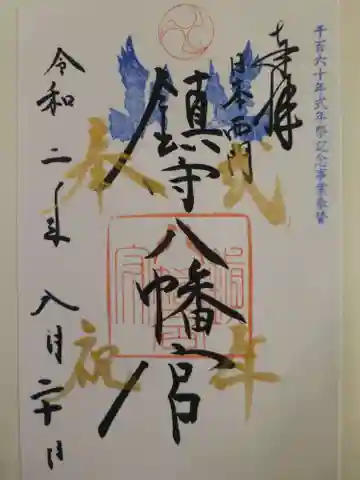 千百六十年式年祭記念事業奉賛
奉拝
日本西門
鎮守八幡宮
式年
奉祝
令和二年八月二十日